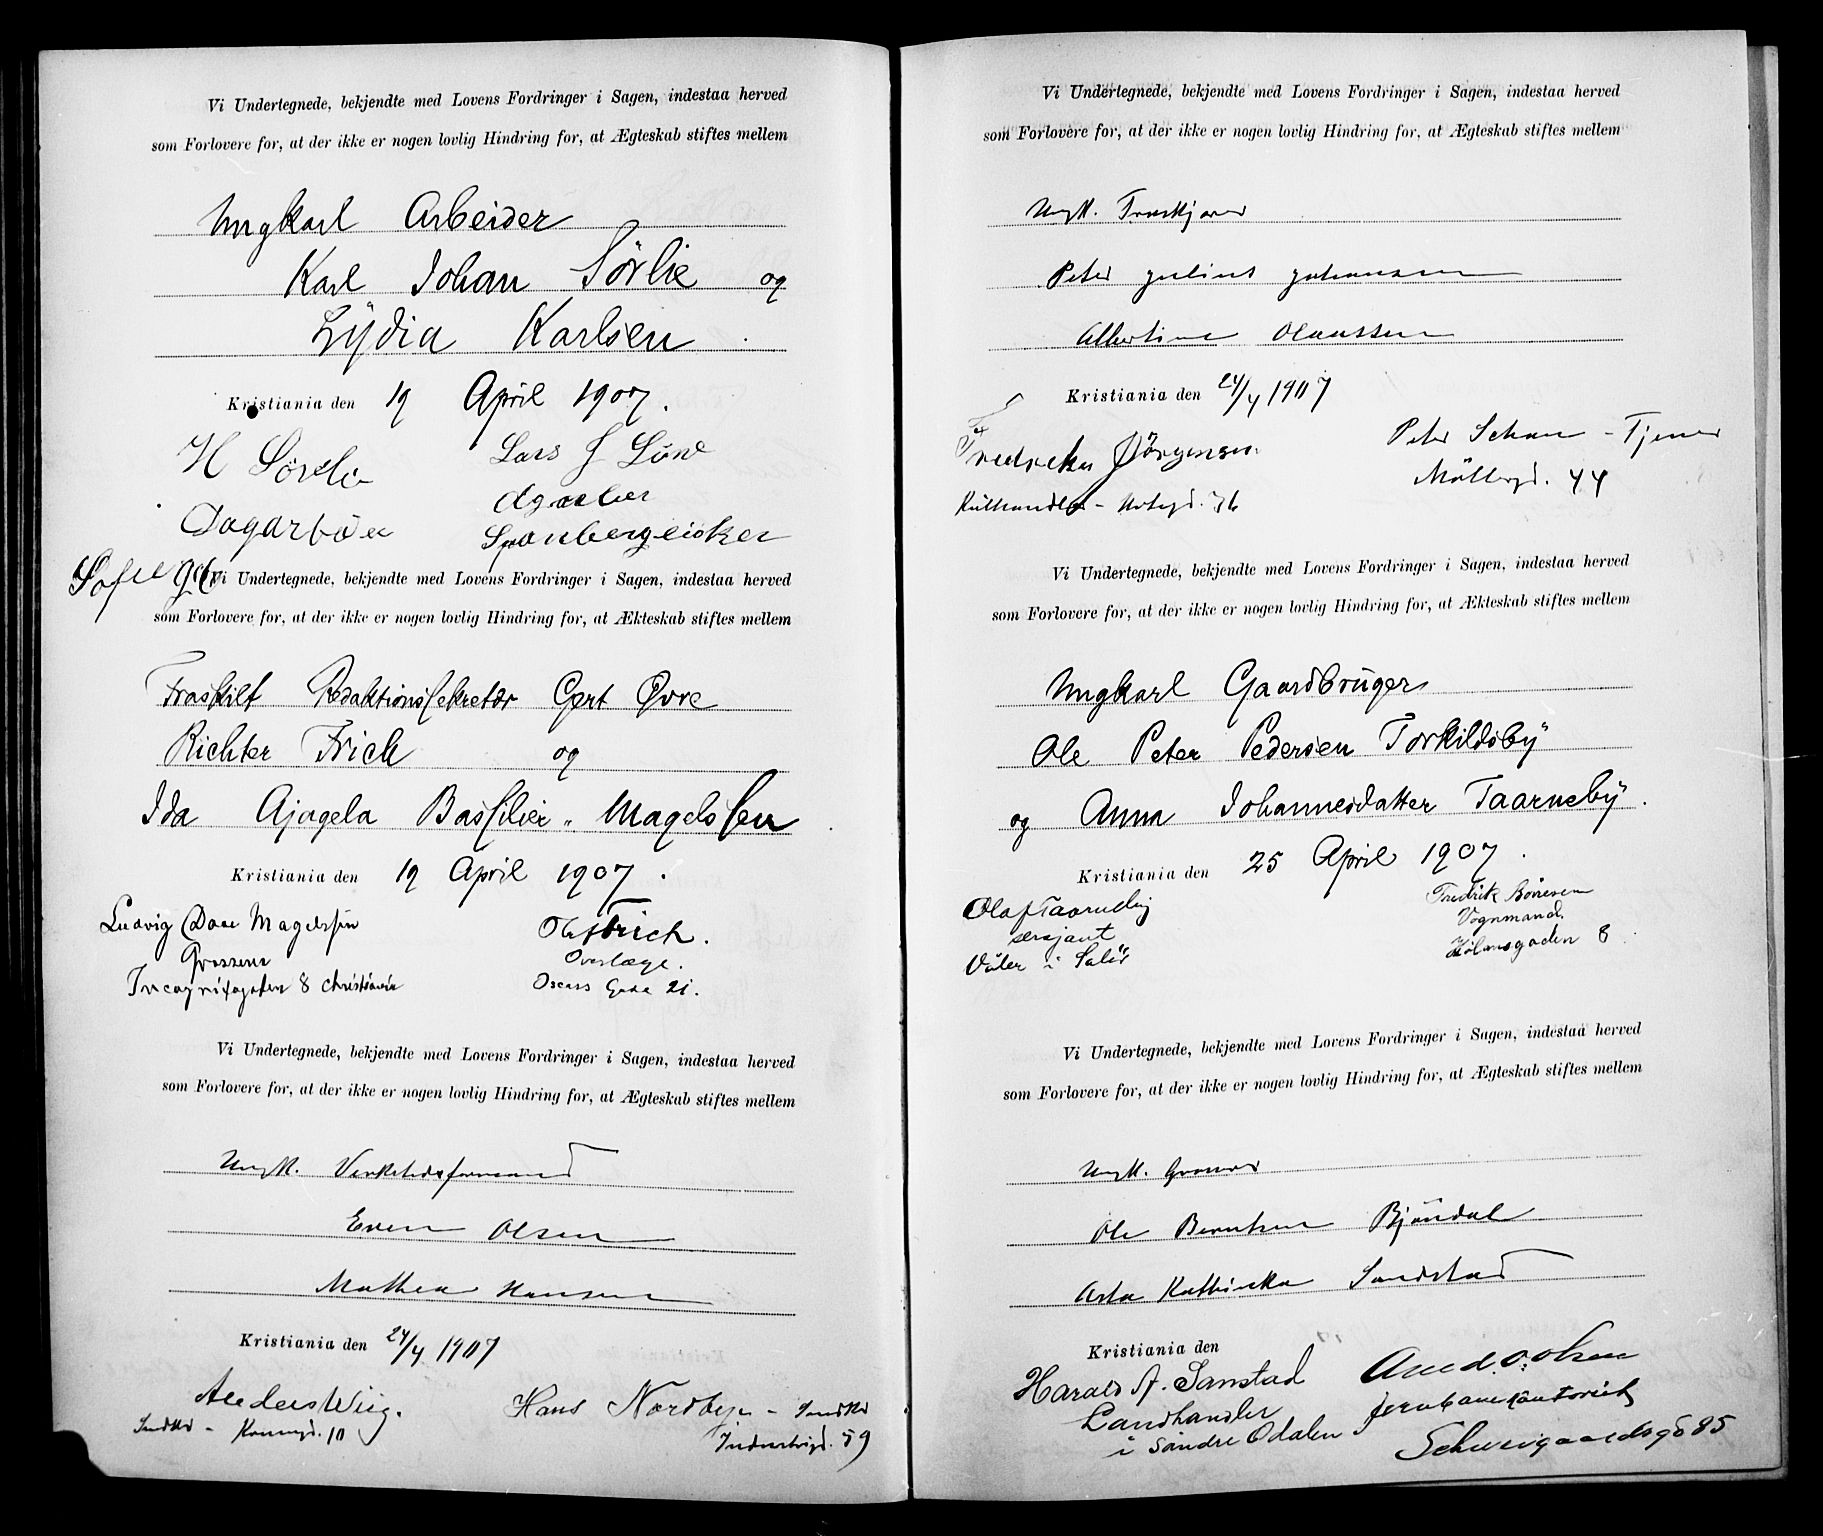 Vi Undertegnede, bekjendte med Lovens Fordringer i Sagen, indestaa herved
som Forlovere for, at der ikke er nogen lovlig Hindring for, at Ægteskab stiftes mellem
Ungkarl Arbeider
Karl Johan Sörlie og
Lydia Karlsen.
Kristiania den 19 April 1907.
H Sörlie
Lars J Lüne
Sofie
Vi Undertegnede, bekjendte med Lovens Fordringer i Sagen, indestaa herved
som Forlovere for, at der ikke er nogen lovlig Hindring for, at Ækteskab stiftes mellem
Fraskilt Redaktionssekretær Gert Øvre
Richter Frich og
Ida Ajagela Bassilier Magelssen
Kristiania den 19 April 1907.
Ludvig Daae Magelssen
Ole Frich.
Grosserer
Overlæge.
Incognitogaden 8 Christiania
Oscars Gade 21.
Vi Undertegnede, bekjendte med Lovens Fordringer i Sagen, indestaa herved
som Forlovere for, at der ikke er nogen lovlig Hindring for, at Ægteskab stiftes mellem
Ungk. Verkstedsformand
Even Olsen
Mathea Hansen
Kristiania den 24/4 1907
Anders Wiig.
Hans Nordbye - Snedker
Snedker - 10
Industrigd. 59
Vi Undertegnede, bekjendte med Lovens Fordringer i Sagen, indestaa herved
som Forlovere for, at der ikke er nogen lovlig Hindring for, at Ægteskab stiftes mellem
Ungk.
Peter Julius Johansen
Albertine Olaussen
Kristiania den 24/4 1907
Jörgensen
Kulhandler - 36
Peter Schou - Tjener
Möllergd. 44
Vi Undertegnede, bekjendte med Lovens Fordringer i Sagen, indestaa herved
som Forlovere for, at der ikke er nogen lovlig Hindring for, at Ækteskab stiftes mellem
Ungkarl Gaardbruger
Ole Peter Pedersen Torkildsby
og Anna Johannesdatter Taarneby.
Kristiania den 25 April 1907.
Olaf Taarneby
sersjant
Våler i Solör
Fredrik Börresen
Vognmand.
Hölandsgaden 8
Vi Undertegnede, bekjendte med Lovens Fordringer i Sagen, indestaa herved
som Forlovere for, at der ikke er nogen lovlig Hindring for, at Ægteskab stiftes mellem
Ungk.
Ole Berntsen Bjöndal
Asta Kathinka Sandstad
Kristiania den
Harald A. Sanstad
Landhandler
i Söndre Odalen
Amd. O. Olsen
Jernbanekontorist
Schweigaardsg 85